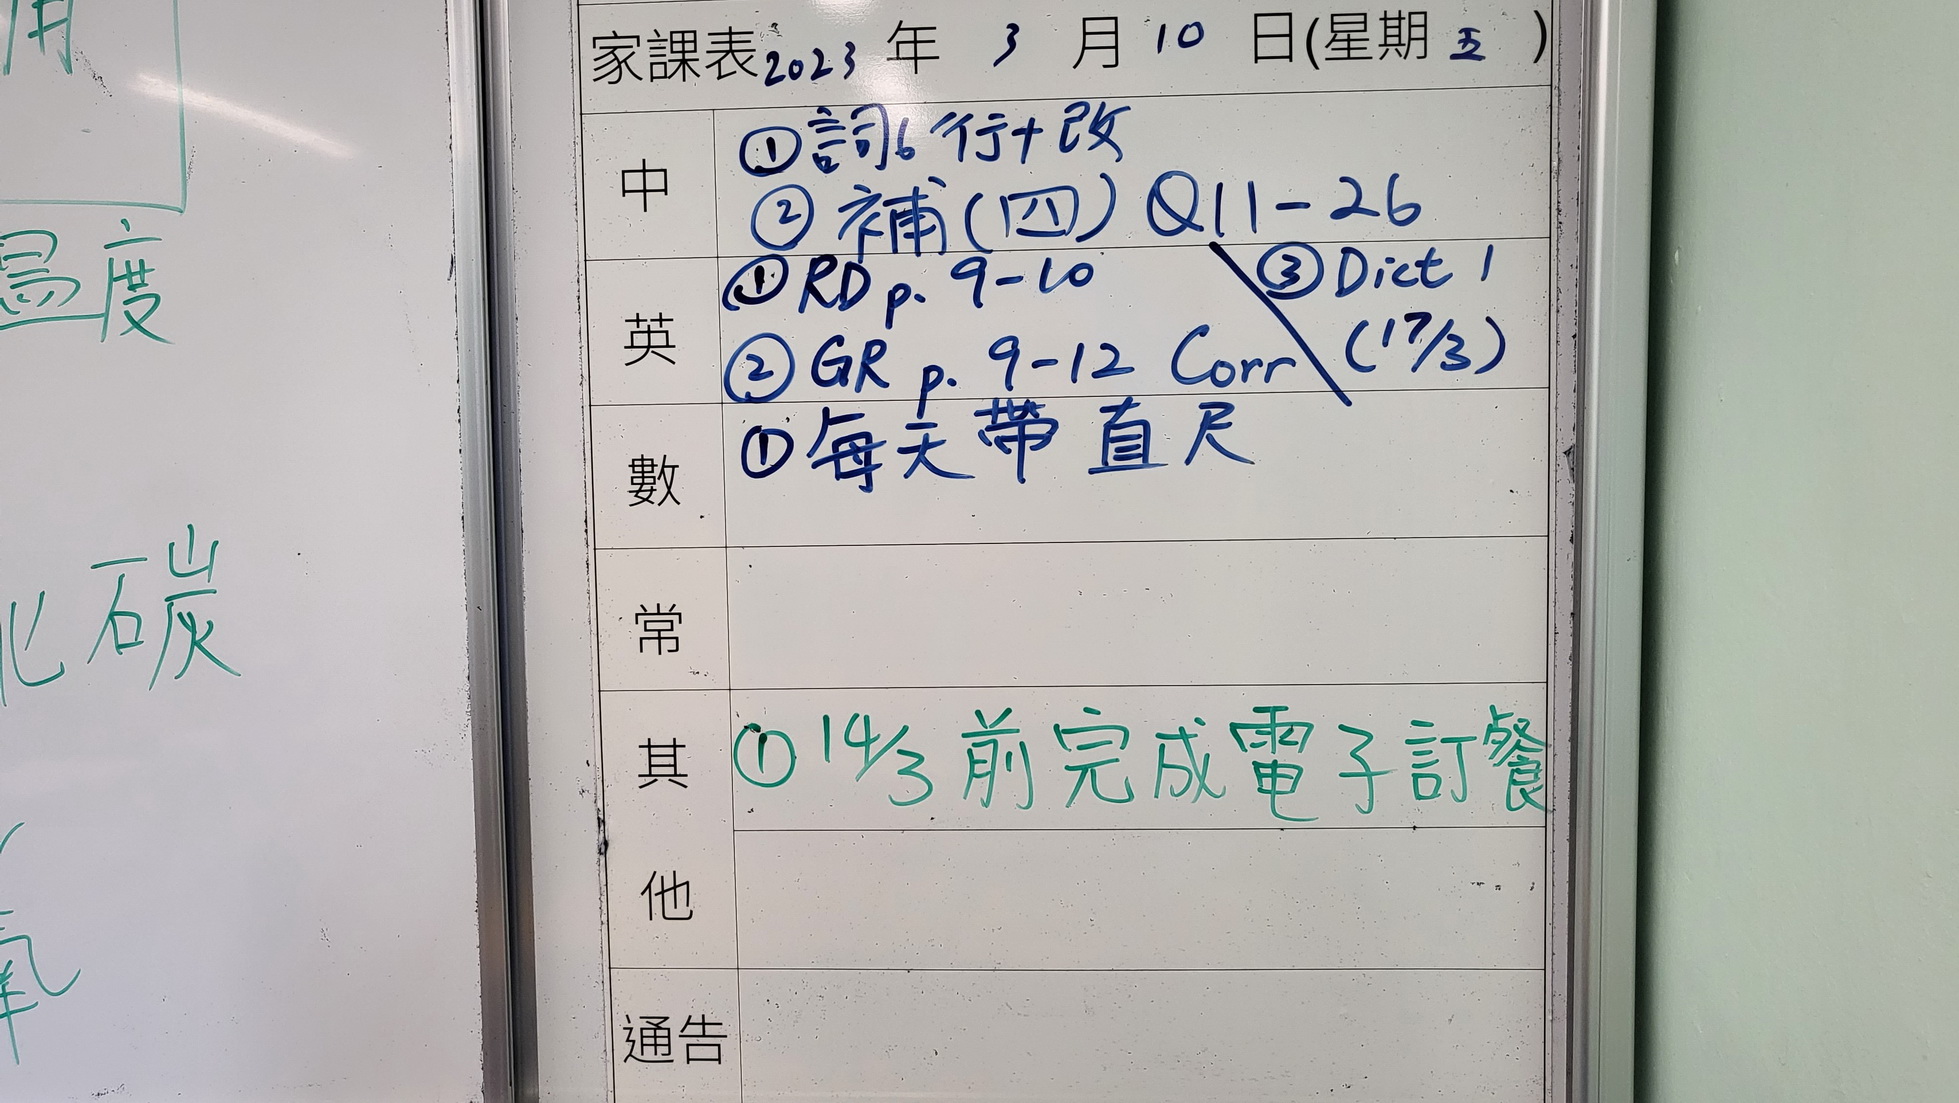 用
溫度
化碳
氧
家課表2023年3月10日(星期五)
中
①詞6行+改
②補(四)Q11-26
英
①RD p. 9-10
②GR p. 9-12 Corr
③Dict 1
(17/3)
數
①每天帶直尺
常
其他
①14/3前完成電子訂餐
通告